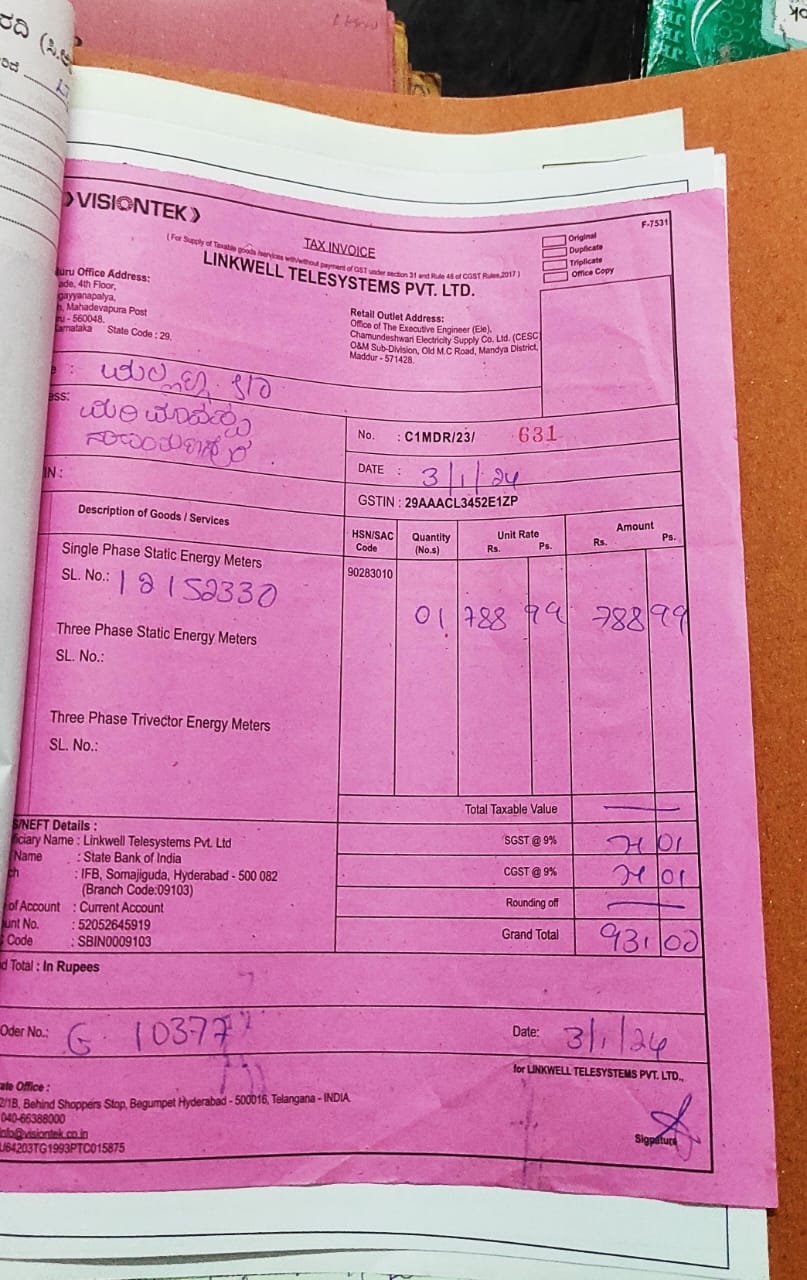 VISIONTEK
F-7531
TAX INVOICE
( For Supply of Taxable goods /services with/without payment of GST under section 31 and Rule 46 of CGST Rules,2017 )
LINKWELL TELESYSTEMS PVT. LTD.
Original
Duplicate
Triplicate
Office Copy
Office Address:
4th Floor,
Mahadevapura Post
- 560048.
State Code : 29.
Retail Outlet Address:
Office of The Executive Engineer (Ele),
Chamundeshwari Electricity Supply Co. Ltd. (CESC)
O&M Sub-Division, Old M.C Road, Mandya District,
Maddur - 571428.
No. : C1MDR/23/ 631
DATE : 3/1/24
GSTIN : 29AAACL3452E1ZP
Description of Goods / Services
HSN/SAC Code
Quantity (No.s)
Unit Rate
Rs. Ps.
Amount
Rs. Ps.
Single Phase Static Energy Meters
SL. No.: 12152330
90283010
01 788 99 788 99
Three Phase Static Energy Meters
SL. No.:
Three Phase Trivector Energy Meters
SL. No.:
Total Taxable Value
SGST @ 9% 71 01
CGST @ 9% 71 01
Rounding off
Grand Total 931 00
/NEFT Details :
Name : Linkwell Telesystems Pvt. Ltd
Name : State Bank of India
: IFB, Somajiguda, Hyderabad - 500 082
(Branch Code:09103)
of Account : Current Account
No. : 52052645919
Code : SBIN0009103
Total : In Rupees
Oder No.: G 10377
Date: 3/1/24
for LINKWELL TELESYSTEMS PVT. LTD.,
Office :
Behind Shoppers Stop, Begumpet Hyderabad - 500016, Telangana - INDIA.
040-66388000
info@visiontek.co.in
U64203TG1993PTC015875
Signature